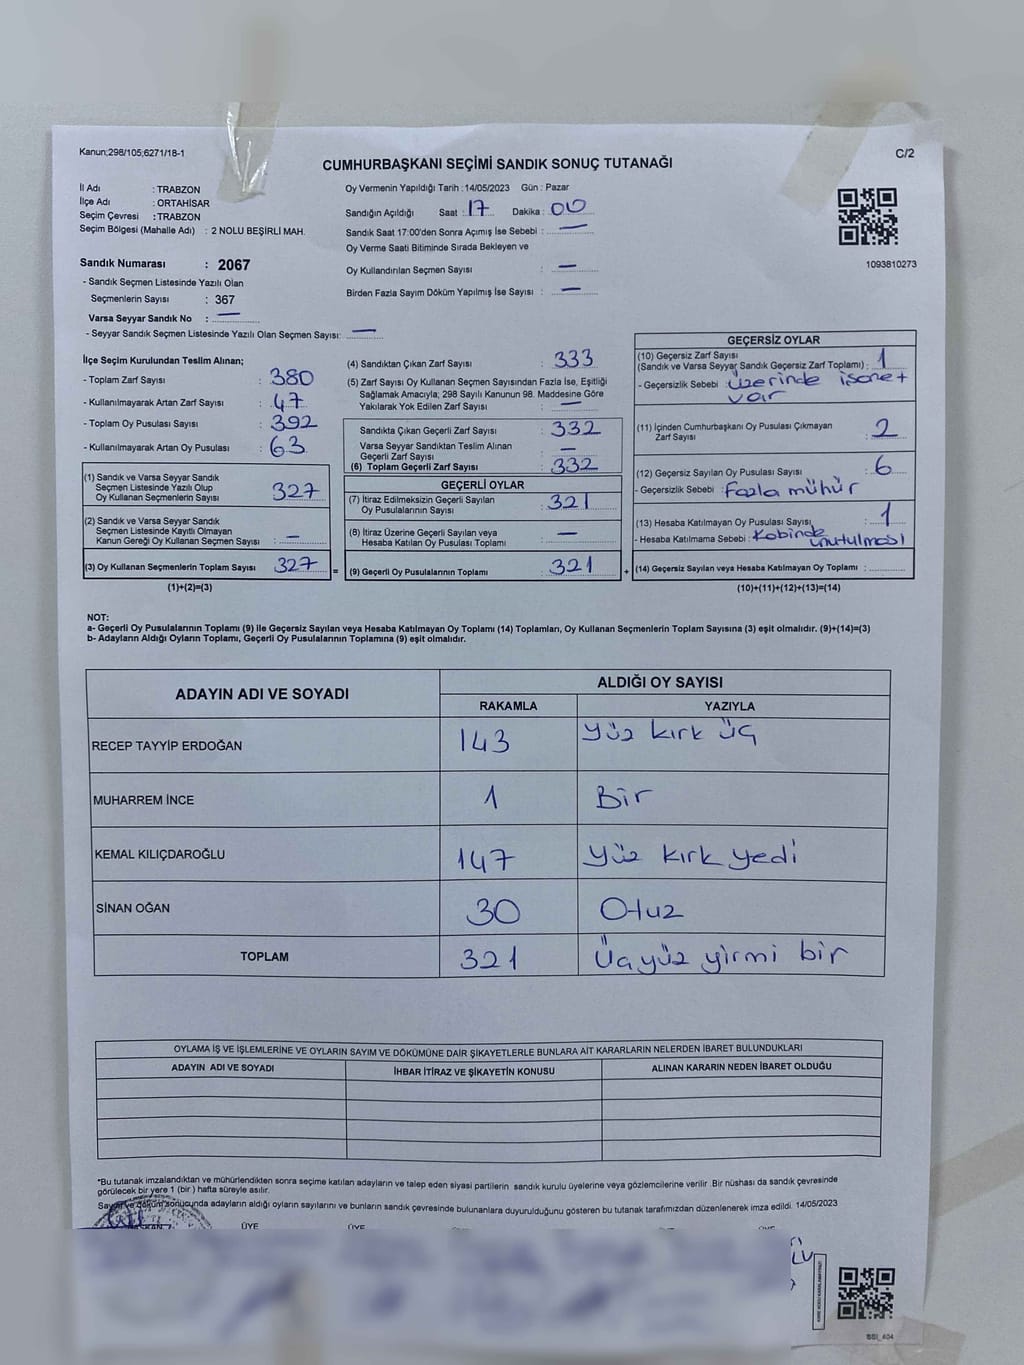 Kanun;298/105;6271/18-1
C/2
CUMHURBAŞKANI SEÇİMİ SANDIK SONUÇ TUTANAĞI
İl Adı : TRABZON
İlçe Adı : ORTAHİSAR
Seçim Çevresi : TRABZON
Seçim Bölgesi (Mahalle Adı) : 2 NOLU BEŞİRLİ MAH.
Sandık Numarası : 2067
- Sandık Seçmen Listesinde Yazılı Olan
Seçmenlerin Sayısı : 367
Varsa Seyyar Sandık No : —
- Seyyar Sandık Seçmen Listesinde Yazılı Olan Seçmen Sayısı: —
Oy Vermenin Yapıldığı Tarih : 14/05/2023 Gün : Pazar
Sandığın Açıldığı Saat : 17 Dakika : 00
Sandık Saat 17:00'den Sonra Açımış İse Sebebi : —
Oy Verme Saati Bitiminde Sırada Bekleyen ve
Oy Kullandırılan Seçmen Sayısı : —
Birden Fazla Sayım Döküm Yapılmış İse Sayısı : —
1093810273
İlçe Seçim Kurulundan Teslim Alınan;
- Toplam Zarf Sayısı : 380
- Kullanılmayarak Artan Zarf Sayısı : 47
- Toplam Oy Pusulası Sayısı : 392
- Kullanılmayarak Artan Oy Pusulası : 63
(1) Sandık ve Varsa Seyyar Sandık
Seçmen Listesinde Yazılı Olup
Oy Kullanan Seçmenlerin Sayısı : 327
(2) Sandık ve Varsa Seyyar Sandık
Seçmen Listesinde Kayıtlı Olmayan
Kanun Gereği Oy Kullanan Seçmen Sayısı : —
(3) Oy Kullanan Seçmenlerin Toplam Sayısı : 327
(1)+(2)=(3)
(4) Sandıktan Çıkan Zarf Sayısı : 333
(5) Zarf Sayısı Oy Kullanan Seçmen Sayısından Fazla İse, Eşitliği
Sağlamak Amacıyla; 298 Sayılı Kanunun 98. Maddesine Göre
Yakılarak Yok Edilen Zarf Sayısı : —
Sandıkta Çıkan Geçerli Zarf Sayısı : 332
Varsa Seyyar Sandıktan Teslim Alınan
Geçerli Zarf Sayısı : —
(6) Toplam Geçerli Zarf Sayısı : 332
GEÇERLİ OYLAR
(7) İtiraz Edilmeksizin Geçerli Sayılan
Oy Pusulalarının Sayısı : 321
(8) İtiraz Üzerine Geçerli Sayılan veya
Hesaba Katılan Oy Pusulası Toplamı : —
= (9) Geçerli Oy Pusulalarının Toplamı : 321 +
GEÇERSİZ OYLAR
(10) Geçersiz Zarf Sayısı
(Sandık ve Varsa Seyyar Sandık Geçersiz Zarf Toplamı) : 1
- Geçersizlik Sebebi : üzerinde işaret
var
(11) İçinden Cumhurbaşkanı Oy Pusulası Çıkmayan
Zarf Sayısı : 2
(12) Geçersiz Sayılan Oy Pusulası Sayısı : 6
- Geçersizlik Sebebi : Fazla mühür
(13) Hesaba Katılmayan Oy Pusulası Sayısı : 1
- Hesaba Katılmama Sebebi : Kabinde
unutulması
(14) Geçersiz Sayılan veya Hesaba Katılmayan Oy Toplamı :
(10)+(11)+(12)+(13)=(14)
NOT:
a- Geçerli Oy Pusulalarının Toplamı (9) ile Geçersiz Sayılan veya Hesaba Katılmayan Oy Toplamı (14) Toplamları, Oy Kullanan Seçmenlerin Toplam Sayısına (3) eşit olmalıdır. (9)+(14)=(3)
b- Adayların Aldığı Oyların Toplamı, Geçerli Oy Pusulalarının Toplamına (9) eşit olmalıdır.
ADAYIN ADI VE SOYADI ALDIĞI OY SAYISI
RAKAMLA YAZIYLA
RECEP TAYYİP ERDOĞAN 143 Yüz kırk üç
MUHARREM İNCE 1 Bir
KEMAL KILIÇDAROĞLU 147 Yüz kırk yedi
SİNAN OĞAN 30 Otuz
TOPLAM 321 Üçyüz yirmi bir
OYLAMA İŞ VE İŞLEMLERİNE VE OYLARIN SAYIM VE DÖKÜMÜNE DAİR ŞİKAYETLERLE BUNLARA AİT KARARLARIN NELERDEN İBARET BULUNDUKLARI
ADAYIN ADI VE SOYADI İHBAR İTİRAZ VE ŞİKAYETİN KONUSU ALINAN KARARIN NEDEN İBARET OLDUĞU
*Bu tutanak imzalandıktan ve mühürlendikten sonra seçime katılan adayların ve talep eden siyasi partilerin sandık kurulu üyelerine veya gözlemcilerine verilir .Bir nüshası da sandık çevresinde
görülecek bir yere 1 (bir ) hafta süreyle asılır.
Sayım ve döküm sonucunda adayların aldığı oyların sayılarını ve bunların sandık çevresinde bulunanlara duyurulduğunu gösteren bu tutanak tarafımızdan düzenlenerek imza edildi. 14/05/2023
ÜYE ÜYE
SSI_404